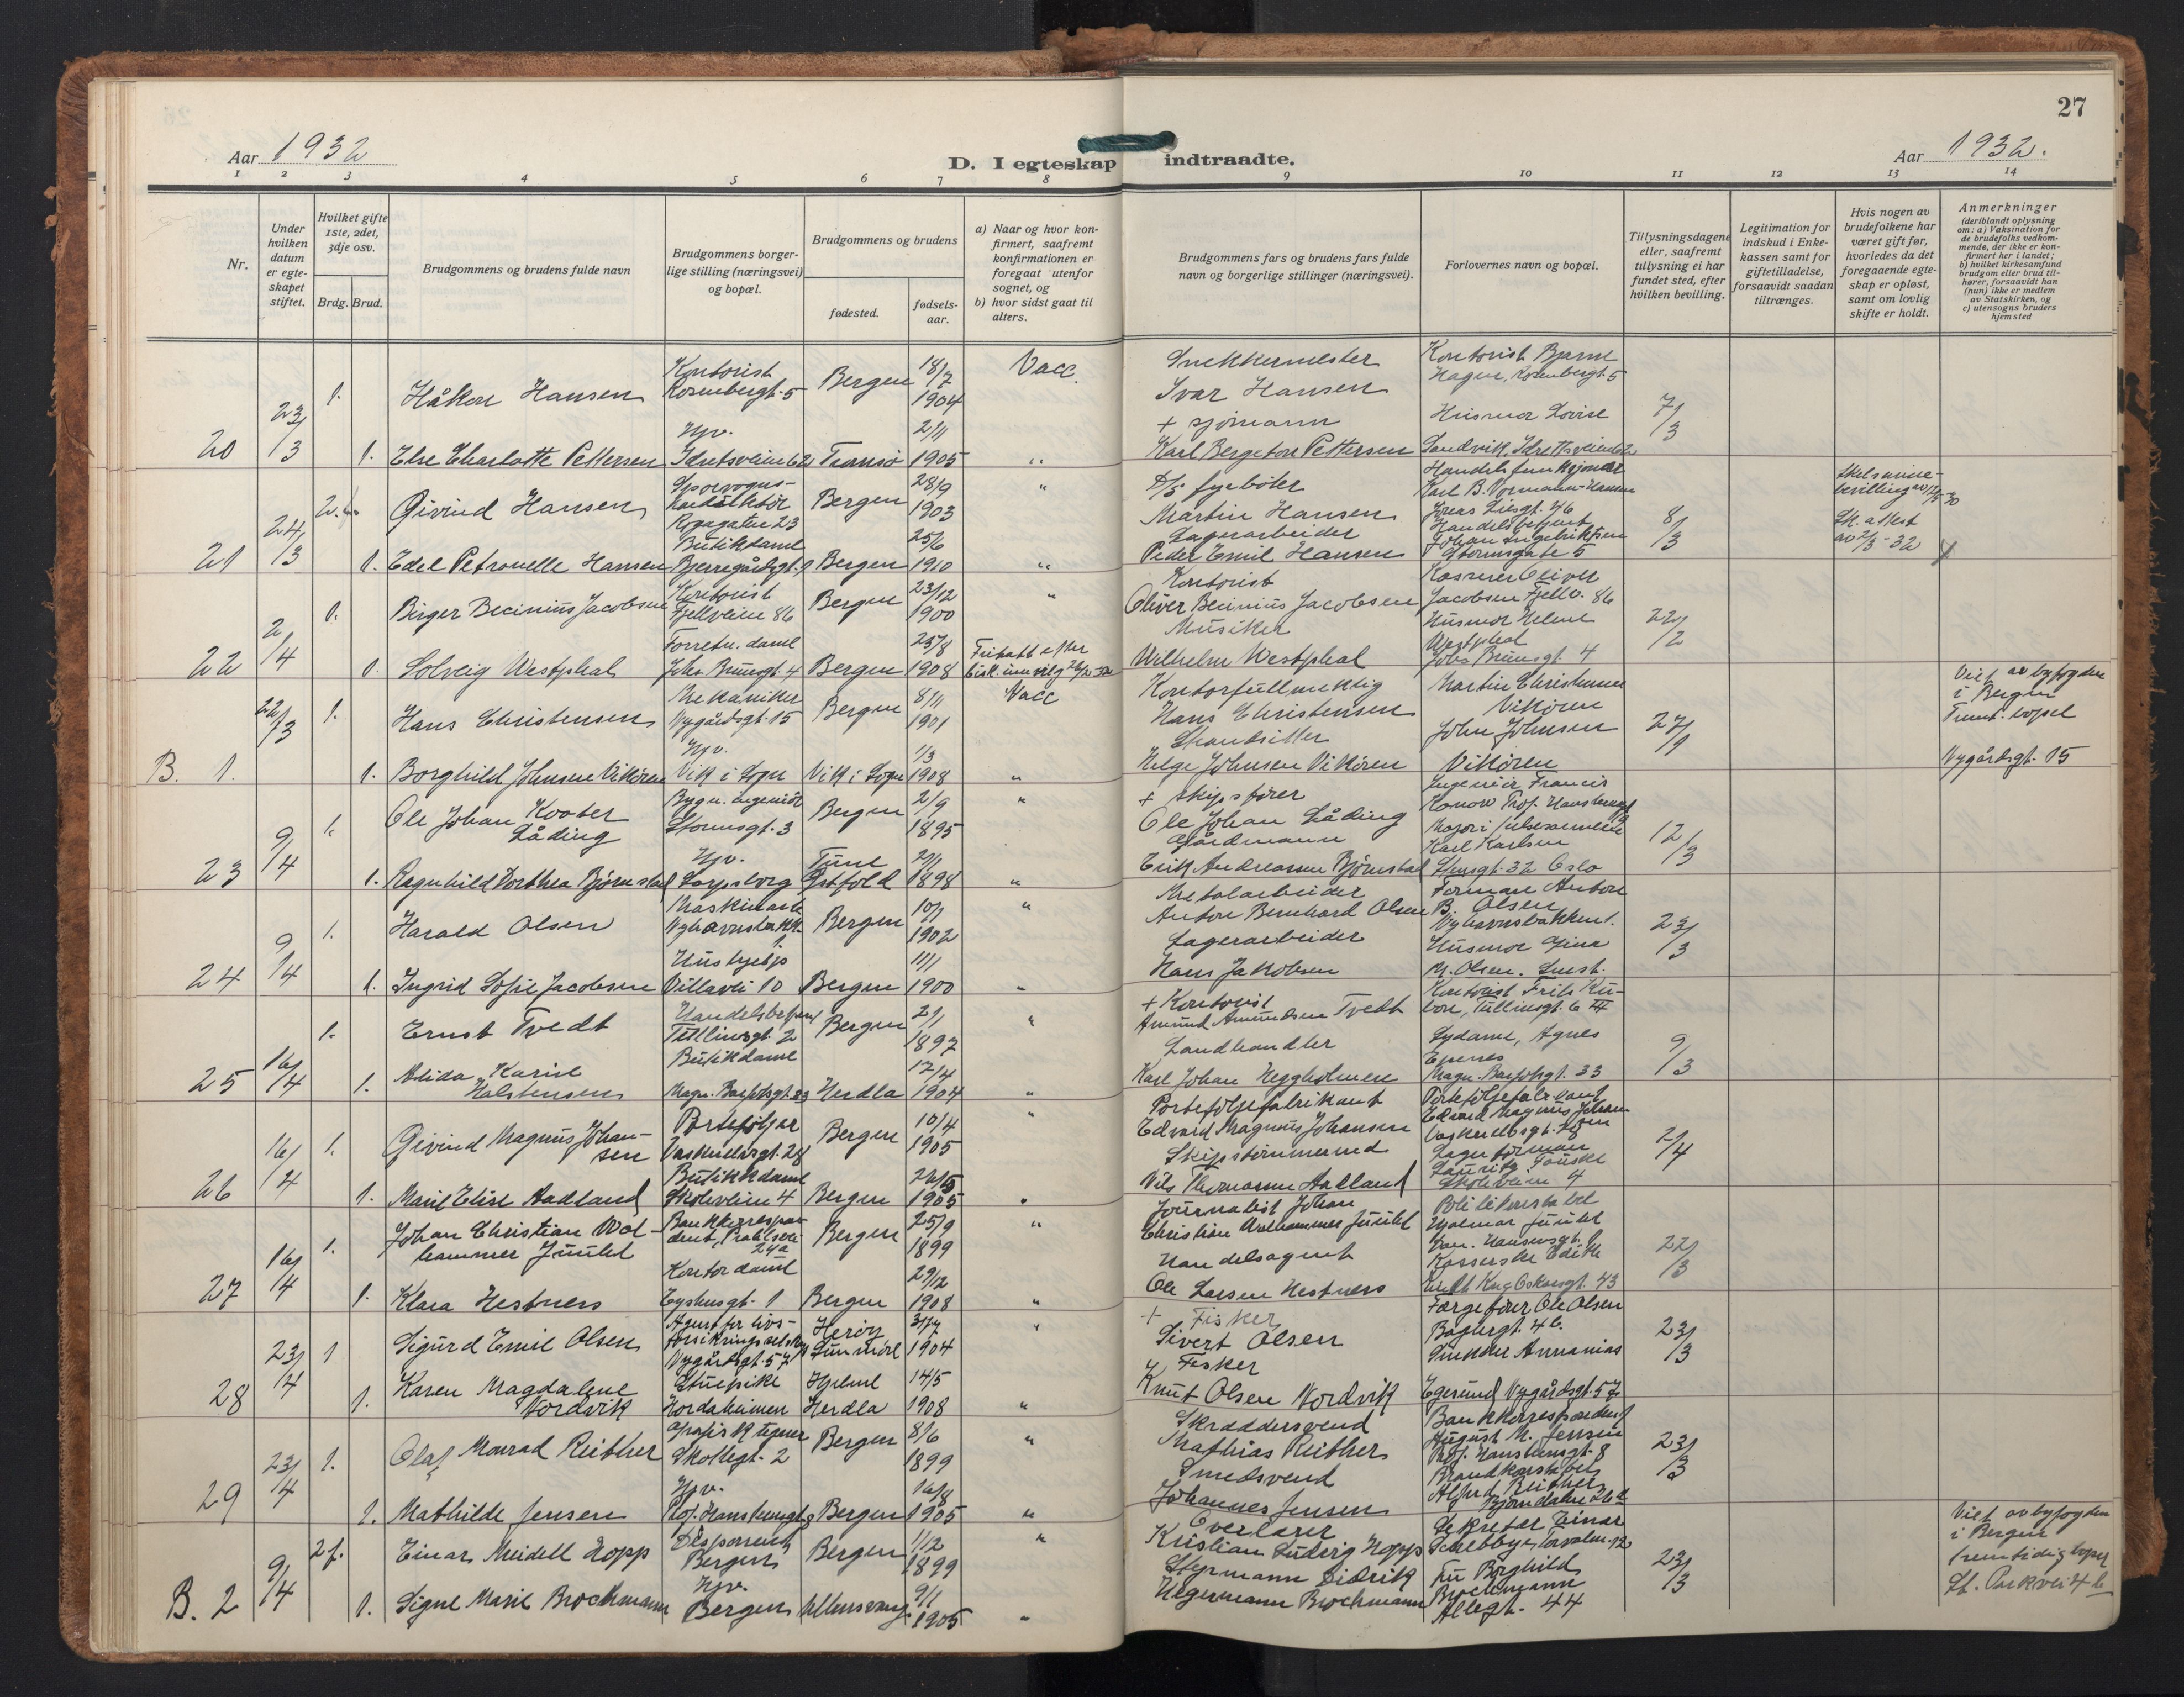 27
Aar 1932
D. I egteskap indtraadte.
Aar 1932.
1 2 3 4 5 6 7 8 9 10 11 12 13 14
Nr.
Under hvilken datum er egteskapet stiftet.
Hvilket gifte 1ste, 2det, 3dje osv.
Brdg. Brud.
Brudgommens og brudens fulde navn
Brudgommens borgerlige stilling (næringsvei) og bopæl.
Brudgommens og brudens
fødested.
fødselsaar.
a) Naar og hvor konfirmert, saafremt konfirmationen er foregaat utenfor sognet, og
b) hvor sidst gaat til alters.
Brudgommens fars og brudens fars fulde navn og borgerlige stillinger (næringsvei).
Forlovernes navn og bopæl.
Tillysningsdagene eller, saafremt tillysning ei har fundet sted, efter hvilken bevilling.
Legitimation for indskud i Enkekassen samt for giftetilladelse, forsaavidt saadan tiltrænges.
Hvis nogen av brudefolkene har været gift før, hvorledes da det foregaaende egteskap er opløst, samt om lovlig skifte er holdt.
Anmerkninger
(deriblandt oplysning om: a) Vaksination for de brudefolks vedkommende, der ikke er konfirmert her i landet;
b) hvilket kirkesamfund brudgom eller brud tilhører, forsaavidt han (hun) ikke er medlem av Statskirken, og
c) utensogns bruders hjemsted
20 23/3 1. Håkon Hansen Kontorist Rosenbergt. 5 Bergen 18/7 1904 Vacc. Snekkermester Ivar Hansen Kontorist Bjarne Hagen, Rosenbergt. 5 7/3
1. Else Charlotte Pettersen Hjv. Idretsveien 62 Tromsø 2/11 1905 " + sjømann Karl Bergeton Pettersen Husmor Lovise Landvik, Idrettsveien 62
21 24/3 2. Øivind Hansen Sporvogns-konduktør Bergen 28/9 1903 " D/s fyrbøter Martin Hansen Handelsfunksjonær Karl B. Normann-Hansen 8/3 Skilsmisse-bevilling
1. Edel Petronelle Hansen Butikdame Bjerregårdsgt. 9 Bergen 25/6 1910 " Lagerarbeider Peder Emil Hansen Handelsbetjent Johan Stormsgate 5 Sk. attest av 2/3-32
22 2/4 1. Birger Becinius Jacobsen Kontorist Fjellveien 86 Bergen 23/12 1900 " Kontorist Oliver Becinius Jacobsen Kasserer Oliver Jacobsen Fjellv. 86 22/2
1. Solveig Westphal Forretn. dame Johs Brunsgt. 4 Bergen 25/8 1908 Musiker Wilhelm Westphal Husmor Helene Westphal Johs Brunsgt. 4
B. 1. 22/3 1. Hans Christensen Mekaniker Nygårdsgt. 15 Bergen 8/11 1901 Vacc Kontorfullmektig Hans Christensen Martin Christensen Vikøren 27/1 Viet av byfogden i Bergen
1. Borghild Johnsen Vikøren Hjv. Vik i Sogn Vik i Sogn 1/3 1908 " Strandsitter Helge Johnsen Vikøren John Johnsen Vikøren Nygårdsgt. 15
23 9/4 1. Ole Johan Låding Bygn. ingeniør Stormsgt. 3 Bergen 2/9 1895 " + skipsfører Ole Johan Låding Ingeniør Francis Konow Prof. Hansteensgt 12/3
1. Ragnhild Dorthea Bjørnstad Hjv. Sarpsborg Tune Østfold 29/1 1898 " Gårdmann Erik Andreassen Bjørnstad Major i frelsesarmeen Karl Karlsen Oslo
24 9/4 1. Harald Olsen Nyhavnsbakk. 1 Bergen 10/1 1902 " Metalarbeider Anton Bernhard Olsen Formann Anton B. Olsen Nyhavnsbakken 1. 23/3
1. Ingrid Sofie Jacobsen Villavei 10 Bergen 1/11 1900 " Lagerarbeider Hans Jakobsen Husmor Gina M. Olsen.
25 16/4 1. Ernst Tvedt Handelsbetjent Tullinsgt. 2 Bergen 2/1 1897 " + Kontorist Amund Amundsen Tvedt Kontorist Frits Tullinsgt. 6 III 9/3
1. Alida Karine Halstensen Butikdame Magn. Barfotsgt. 33 Herdla 12/4 1904 " Landhandler Karl Johan Heggholmen Sydame, Agnes Espenes Magn. Barfotsgt. 33
26 16/4 1. Øivind Magnus Johansen Porteføljer Vaskerelvsgt. 28 Bergen 10/4 1905 " Porteføljefabrikant Edvard Magnus Johansen Porteføljefabrikant Edvard Magnus Johansen Vaskerelvsgt. 28 2/4
1. Marie Elise Aadland Butikkdame Skoleveien 4 Bergen 26/5 1905 " Skipstømmermd Nils Thomassen Aalland Lagerformann Lauritz Fauske Skoleveien 4
27 16/4 1. Johan Christian Wolhammer Juuhl Bankkorrespondent, 24a Bergen 25/9 1899 " Journalist Johan Christian Wolhammer Juuhl Politikonstabel Hjalmar Juuhl 22/3
1. Klara Hestnes Kontordame Eyshusgt. 1 Bergen 29/12 1908 " Handelsagent Ole Larsen Hestnes Kasserske Edith Oskarsgt. 43
28 23/4 1 Sigurd Emil Olsen Agent for livs-forsikringsselskap Nygårdsgt. 57 Herøy Sunnmøre 31/7 1904 " + Fisker Sivert Olsen Færgefører Ole Olsen Bøhergt. 4b. 23/3
1. Karen Magdalene Nordvik Stuepike Hordaheimen Hjelme Herdla 14/5 1908 " Fisker Knut Olsen Nordvik Snekker Annanias Egesund Nygårdsgt. 57
29 23/4 1. Olaf Monrad Reither Grafisk tegner Skottegt. 2 Bergen 8/6 1899 " Skræddersvend Mathias Reither Bankkorrespondent August M. Jensen Prof. Hansteensgt. 8 23/3
1. Mathilde Jensen Hjv. Prof. Hansteensgt. 8 Bergen 16/8 1905 " Smedsvend Johannes Jensen Brandkonstabel Alfred Reither
B. 2 9/4 2g. Einar Meidell Hopp Disponent Bergen Bergen 1/12 1899 " Overlærer Kristian Ludvig Hopp Sekretær Einar 23/3 Viet av byfogden i Bergen
1. Signe Marie Brochmann Hjv. Bergen Ullensvang 9/1 1905 " Styrmann Didrik Hegermann Brochmann Fru Borghild Brochmann Allegt. 44 fremtidig bopel St. Parkvei 4b